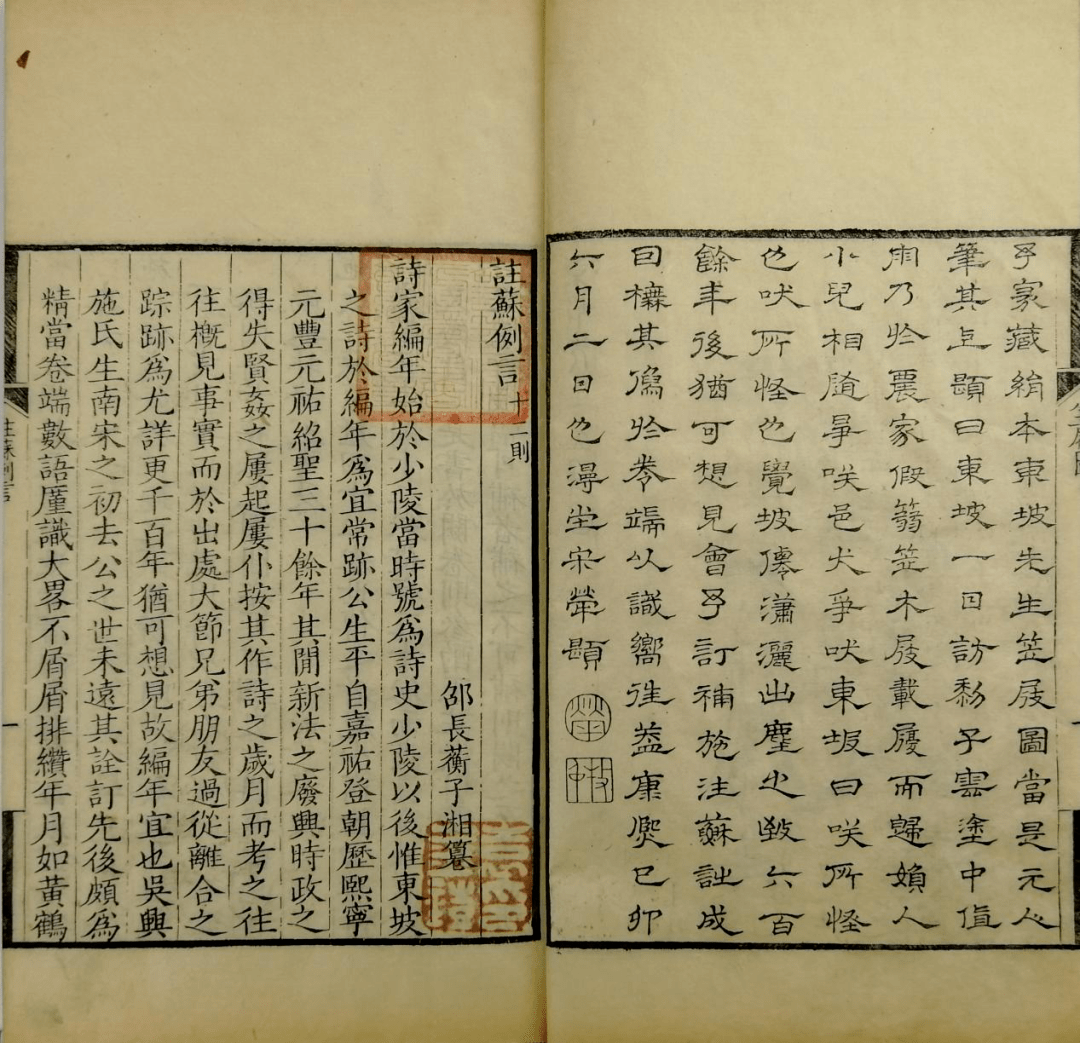 予家藏絹本東坡先生笠屐圖當是元人
筆其上題曰東坡一日訪黎子雲塗中值
雨乃於農家假篛笠木屐載履而歸婦人
小兒相隨爭咲邑犬爭吠東坡曰咲所怪
也吠所怪也覺坡僊瀟灑出塵之致六百
餘年後猶可想見會予訂補施注蘇詩成
因橅其像於卷端以識嚮往益康熙己卯
六月二日也漫堂宋犖題
註蘇例言十二則
邵長蘅子湘纂
詩家編年始於少陵當時號為詩史少陵以後惟東坡
之詩於編年為宜常跡公生平自嘉祐登朝歷熙寧
元豐元祐紹聖三十餘年其閒新法之廢興時政之
得失賢姦之屢起屢仆按其作詩之歲月而考之往
往概見事實而於出處大節兄弟朋友過從離合之
踪跡為尤詳更千百年猶可想見故編年宜也吳興
施氏生南宋之初去公之世未遠其詮訂先後頗為
精當卷端數語厪識大畧不屑屑排纘年月如黃鶴
註蘇例言
一